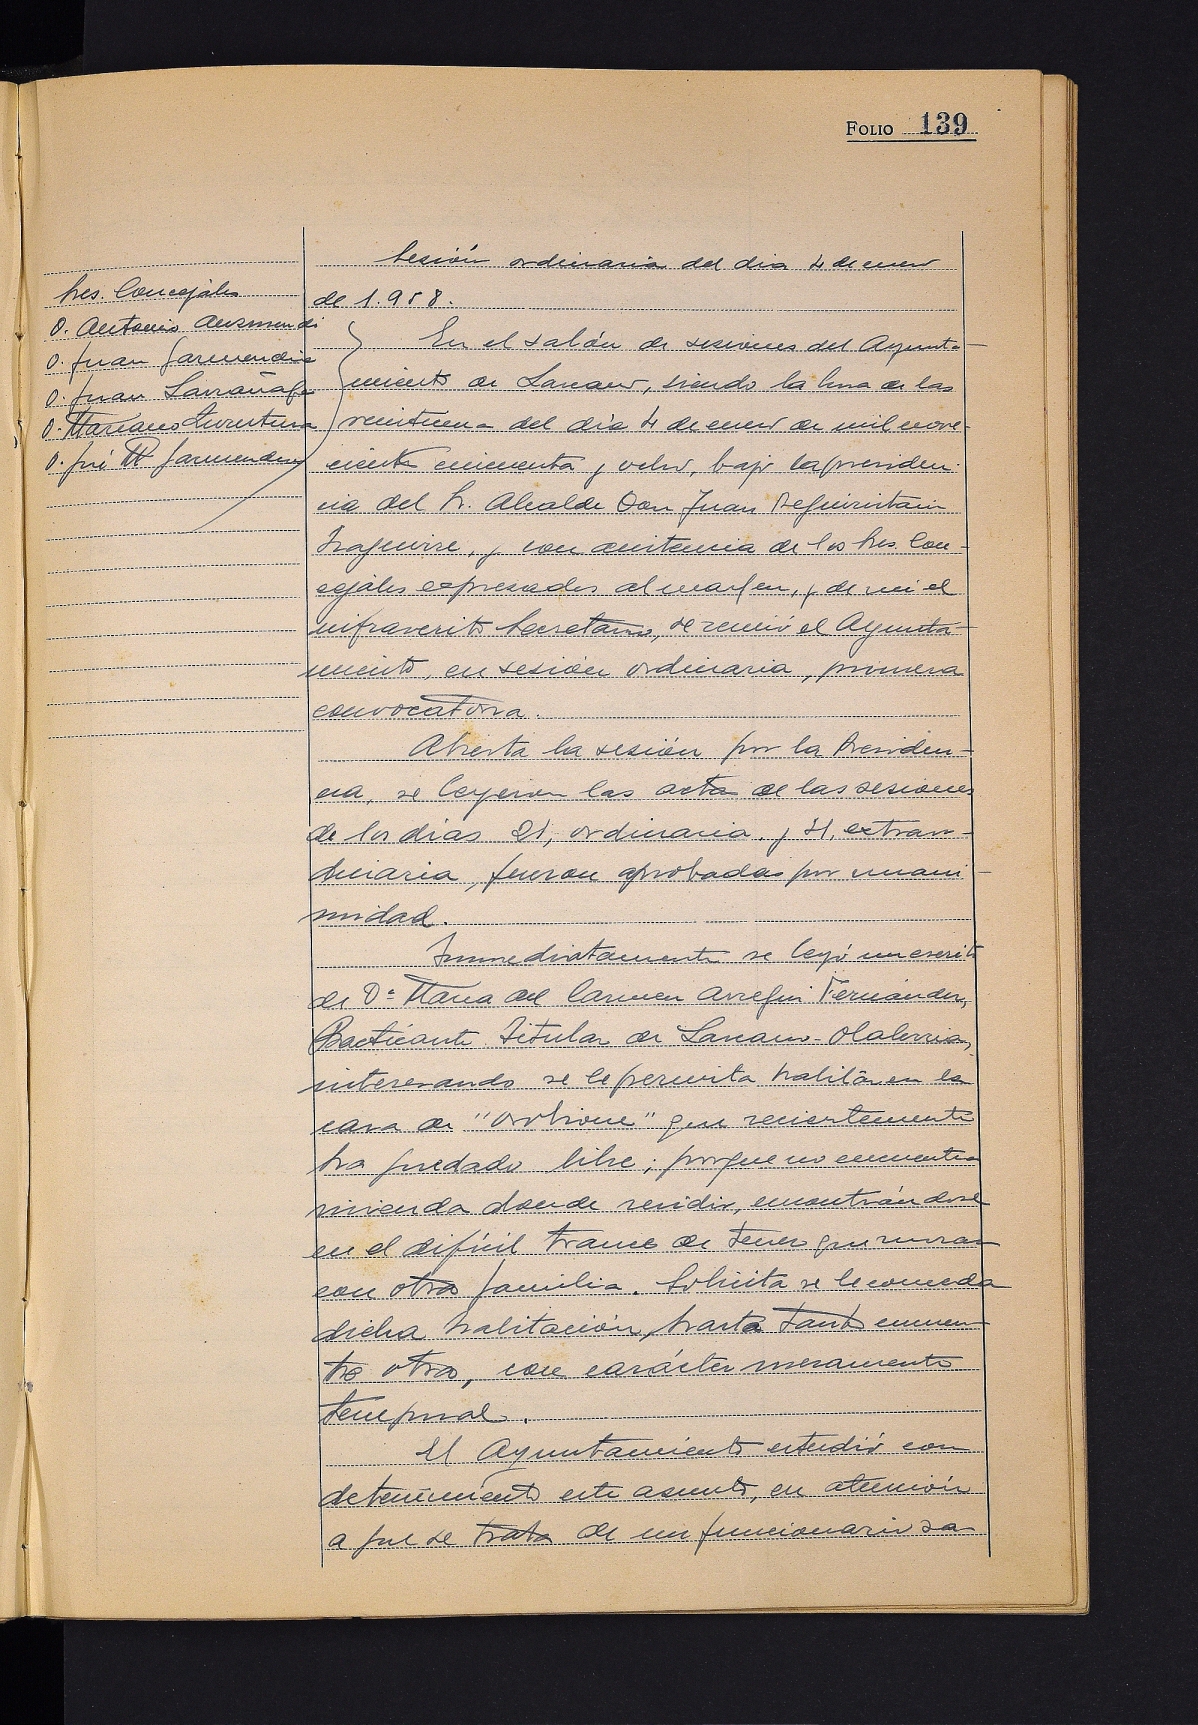 FOLIO 139
Sesión ordinaria del dia 4 de enero
de 1.958.
Sres. Concejales
D. Antonio Ausmendi
D. Juan Garmendia
D. Juan Larrañaga
D. Mariano Iturrtura
D. José M Garmendia
En el salón de sesiones del Ayunta-
miento de Lazcano, siendo la hora de las
veintiuna del día 4 de enero de mil nove-
cientos cincuenta y ocho, bajo la presiden-
cia del Sr. Alcalde Don Juan Reguiristain
Iraguirre, y con asistencia de los Sres. Con-
cejales expresados al margen, y de mi el
infrascrito Secretario, se reunió el Ayunta-
miento, en sesión ordinaria, primera
convocatoria.
Abierta la sesión por la Presiden-
cia, se leyeron las acta de las sesiones
de los dias 21, ordinaria, y 31, extraor-
dinaria, fueron aprobadas por unani-
midad.
Inmediatamente se leyó un escrito
de Dª Maria del Carmen Arregui Fernández,
Practicante Titular de Lazcano-Olaberria,
interesando se le permita habitar en la
casa de "Orobione" que recientemente
ha quedado libre; porque no encuentra
vivienda donde residir, encontrándose
en el difícil trance de tener que morar
con otra familia. Solicita se le conceda
dicha habitación, hasta tanto encuen-
tre otra, con carácter meramente
temporal.
El Ayuntamiento estudió con
detenimiento este asunto, en atención
a que se trata de un funcionario sa-